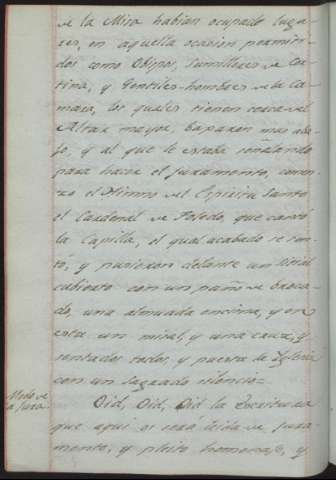 de la Mira habian ocupado luga-
res, en aquella ocasion permiti-
dos como Obispos, Sumilleres de Cor-
tina, y Gentiles-hombres de la Ca-
mara, los quales tienen cerca del
Altar mayor, baxaron mas aba-
jo, y al que le estaba señalado
para hacer el juramento, comen-
zo el Himno del Espiritu Santo
el Cardenal de Toledo, que cantó
la Capilla, el qual acabado se sen-
tó, y pusieron delante un Sitial
cubierto con un paño de broca-
do, una almuada encima, y en
esta un misal, y una cruz, y
sentados todos, y puesta la Iglesia
con un sagrado silencio=
Modo de
la Jura.
Oid, Oid, Oid la Escritura
que aqui os será leida de jura-
mento, y pleito homenaje, y